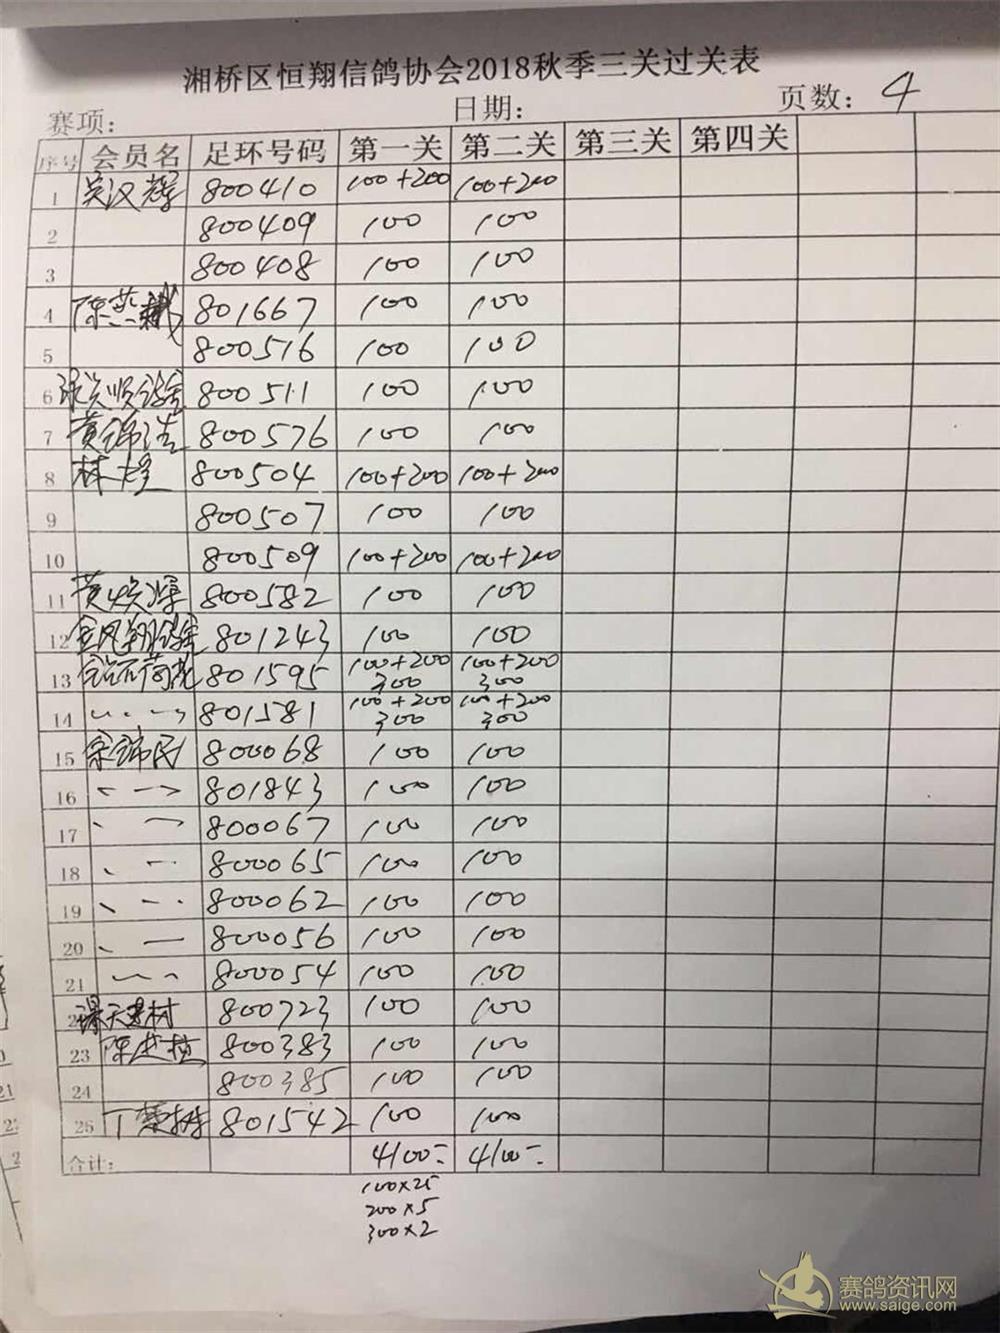 湘桥区恒翔信鸽协会2018秋季三关过关表
赛项: 日期: 页数: 4
序号 会员名 足环号码 第一关 第二关 第三关 第四关
1 吴汉辉 800410 100+200 100+200
2 800409 100 100
3 800408 100 100
4 陈 801667 100 100
5 800516 100 100
6 800511 100 100
7 黄锦浩 800576 100 100
8 林 800504 100+200 100+200
9 800507 100 100
10 800509 100+200 100+200
11 黄 800582 100 100
12 801243 100 100
13 801595 100+200 300 100+200 300
14 801581 100+200 300 100+200 300
15 余锦民 800068 100 100
16 801843 100 100
17 800067 100 100
18 800065 100 100
19 800062 100 100
20 800056 100 100
21 800054 100 100
800723 100 100
23 陈 800383 100 100
24 800385 100 100
25 丁 801542 100 100
合计: 4100 4100
100×25
200×5
300×2
赛鸽资讯网
www.saige.com